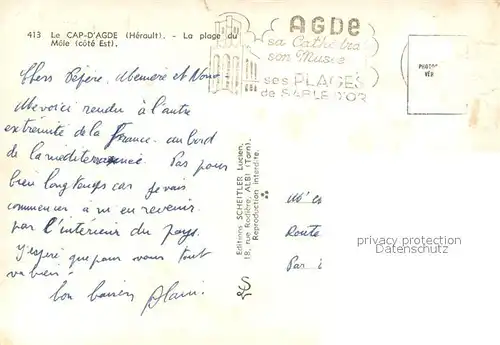 413 Le CAP-D'AGDE (Hérault). - La plage du
Môle (côté Est).
AGDE
sa Cathédra
son Musée
ses PLAGES
de SABLE D'OR
PHOTOG
VER
Chers Pépère, Mémère et Nono
Me voici rendu à l'autre
extrémité de la France au bord
de la méditerranée. Pas pour
bien longtemps car je vais
commencer à m'en revenir
par l'intérieur du pays.
J'espère que pour vous tout
va bien!
bon baisers Alain.
Editions SCHEITLER Lucien,
18, rue Rodière, ALBI (Tarn).
Reproduction interdite.
Mr e
Route
Par
privacy protection
Datenschutz